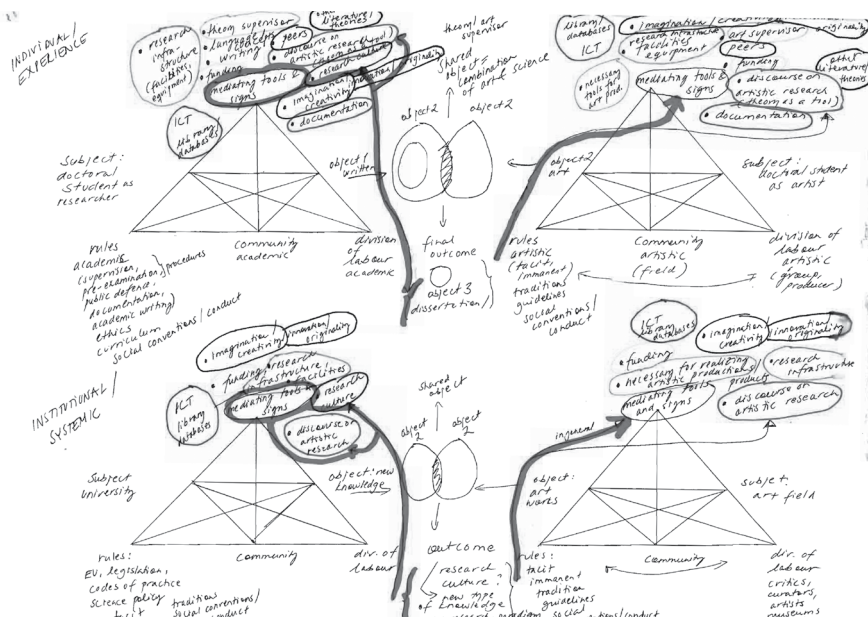 INDIVIDUAL/
EXPERIENCE
• research
infra-
structure
(facilities,
equipment)
• theory supervisor
• language/
writing
• funding
• peers
literature/
theories
• discourse on
artistic research
• research culture
originality
mediating tools &
signs
• imagination/
creativity
• documentation
ICT
library/
databases
Subject:
doctoral
student as
researcher
object 1
written
rules
academic
(supervision,
pre-examination,
public defence,
documentation,
academic writing)
procedures
ethics
curriculum
social conventions/conduct
Community
academic
division
of labour
academic
theory/art
supervisor
shared
object =
combination
of art & science
object 2
object 2
final
outcome
object 3
dissertation/
library/
databases
ICT
• imagination/
originality
• research infrastructure
facilities
equipment
art supervisor
• peers
• funding
other
literature/
theories
• necessary
tools for
art prod.
mediating tools
& signs
• discourse on
artistic research
(theory as a tool)
• documentation
object 2
art
Subject:
doctoral student
as artist
rules
artistic
(tacit,
immanent)
traditions
guidelines
social
conventions/
conduct
Community
artistic
(field)
division of
labour
artistic
(group,
producer)
INSTITUTIONAL/
SYSTEMIC
• imagination/
creativity
innovation/
originality
• funding
• research
infrastructure,
facilities
ICT
library
databases
mediating tools &
signs
research
culture
• discourse on
artistic
research
Subject
university
object: new
knowledge
rules:
EU, legislation,
codes of practice
science policy
tacit
traditions
social conventions/
conduct
Community
div. of
labour
shared
object
object
2
object
2
outcome
research
culture?
new type
of knowledge
ICT
library
databases
• imagination/
creativity
innovation/
originality
• funding
• necessary for realizing
artistic productions/
products
• research
infrastructure
mediating tools
and signs
• discourse on
artistic research
in general
object:
art
works
subject:
art field
rules:
tacit
immanent
tradition
guidelines
social
conventions/conduct
Community
div. of
labour
critics,
curators,
artists
museums